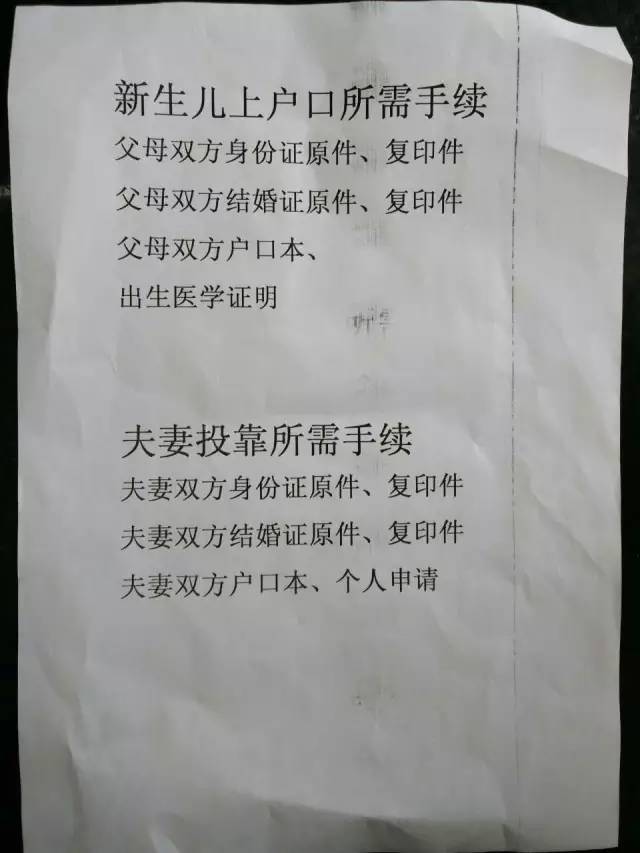 新生儿上户口所需手续
父母双方身份证原件、复印件
父母双方结婚证原件、复印件
父母双方户口本、
出生医学证明
夫妻投靠所需手续
夫妻双方身份证原件、复印件
夫妻双方结婚证原件、复印件
夫妻双方户口本、个人申请